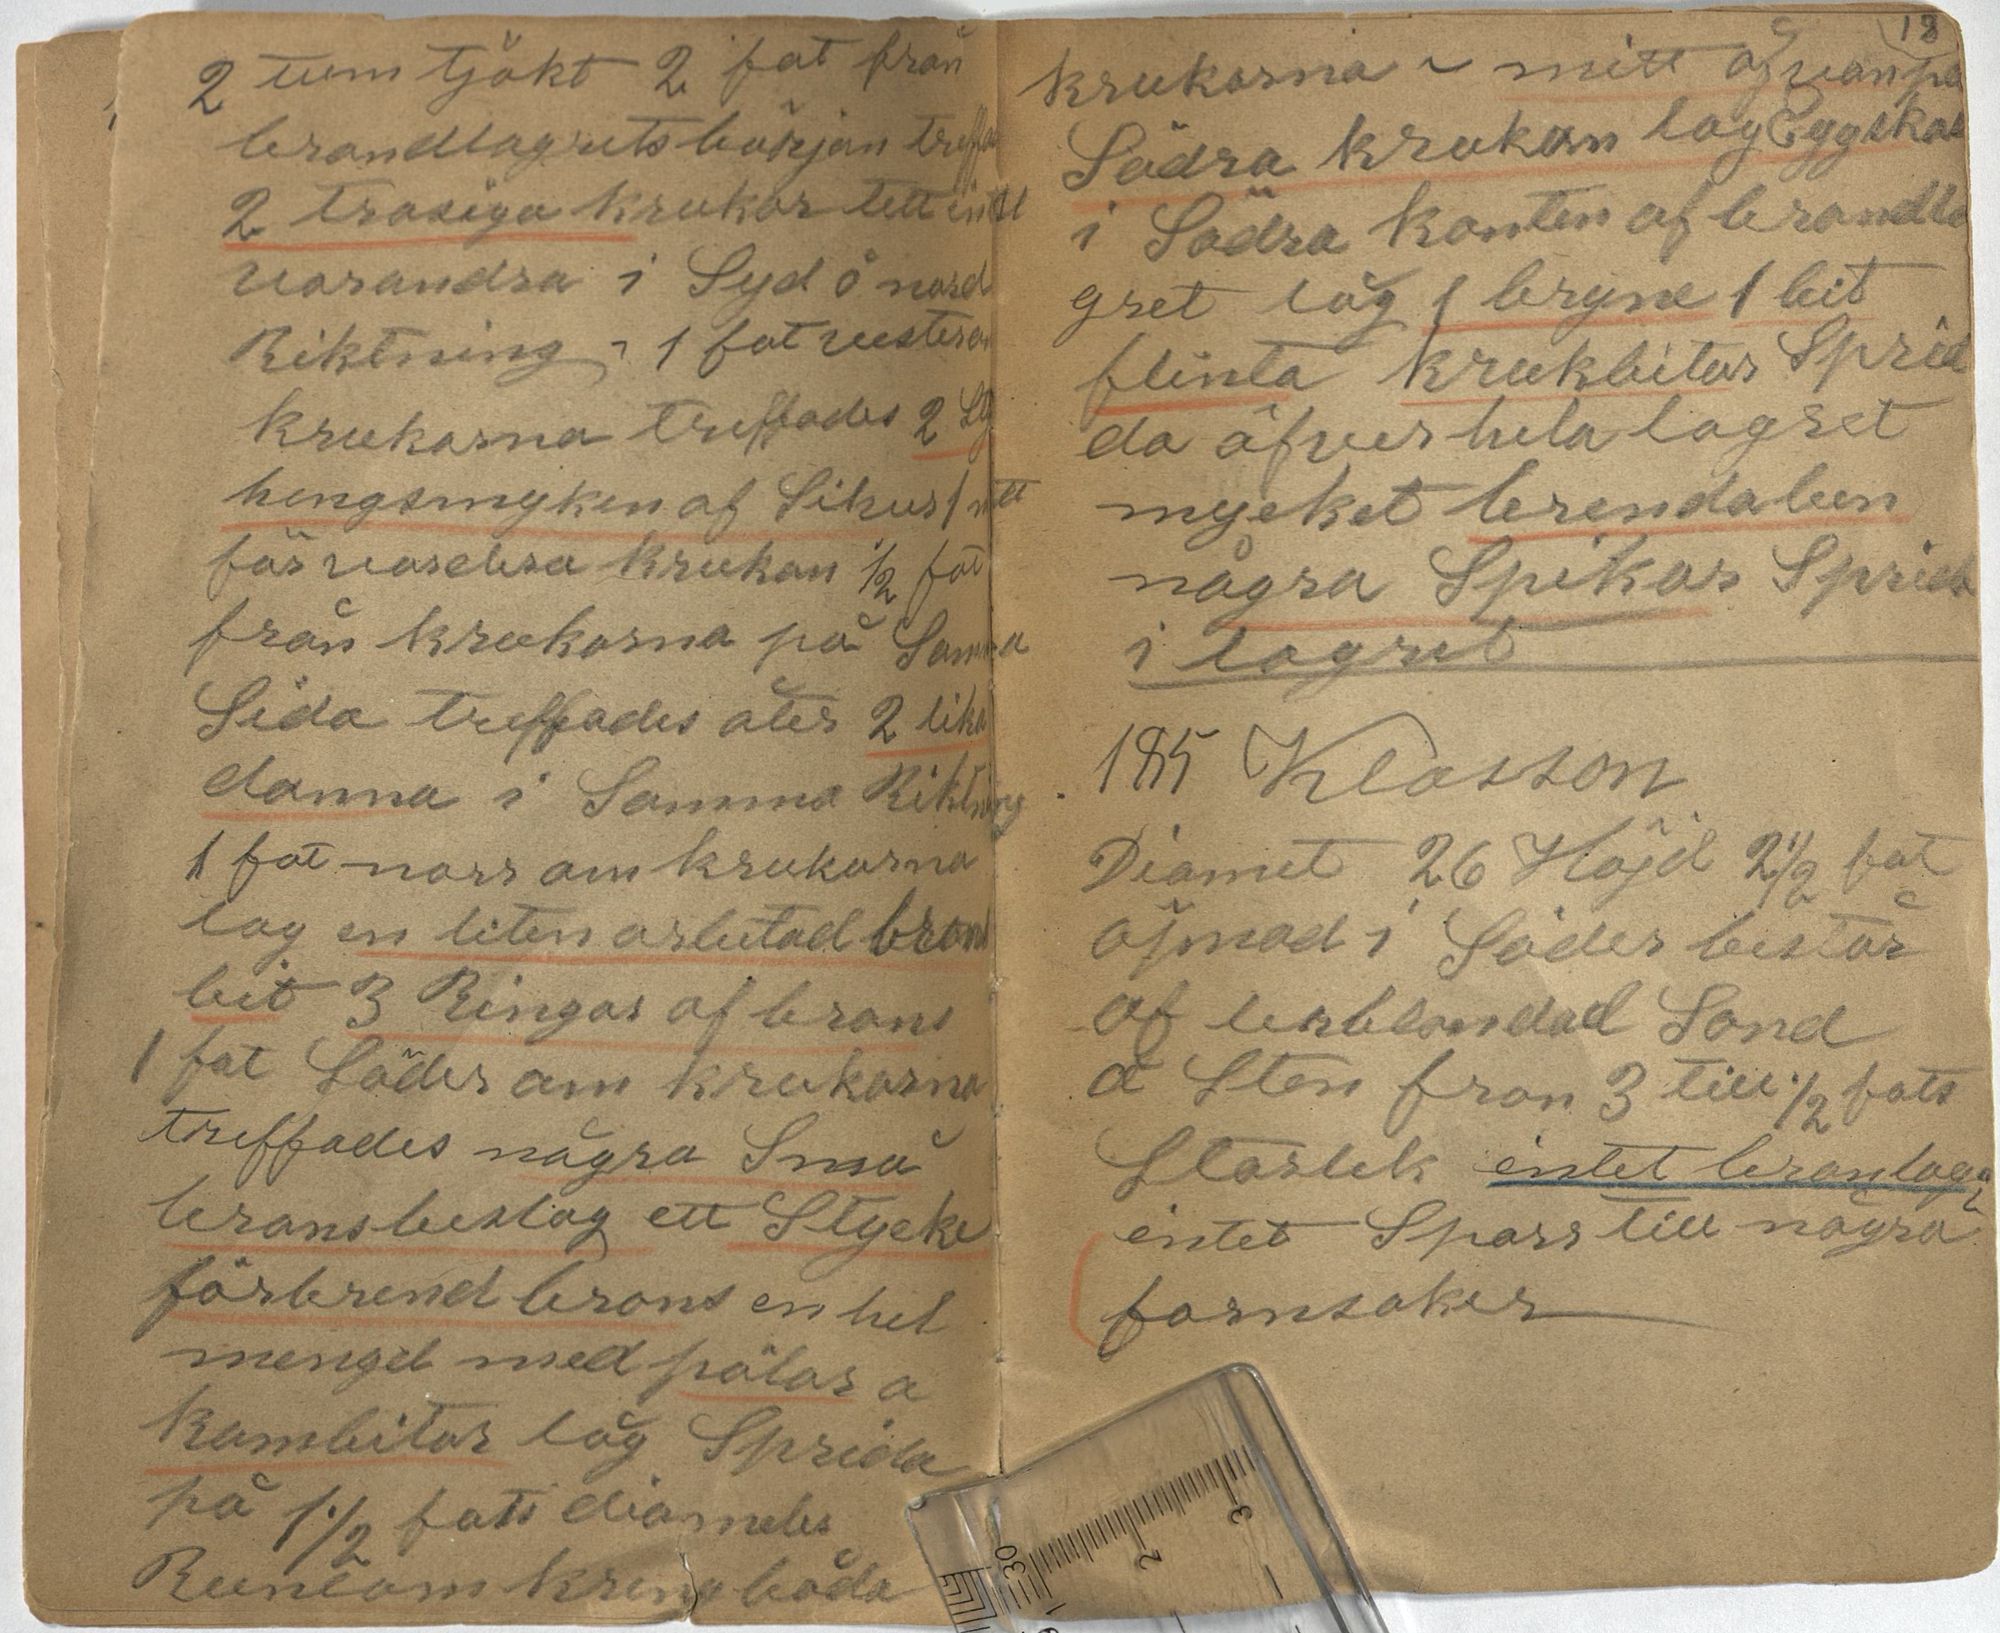 2 tum tjökt 2 fot från
brandlagrets början treffa
2 trasiga krukor tett intil
varandra i Syd o nord
Riktning 1 fot vester om
krukorna treffades 2 st
hengsmyken af Silver 1 mitt
för vardera krukan 1/2 fot
från krukorna på Samma
Sida treffades åter 2 lika
danna i Samma Riktning
1 fot norr om krukorna
lag en liten arbetad brons
bit 3 Ringar af brons
1 fot Söder om krukorna
treffades några Små
bronsbeslag ett Stycke
förbrend brons en hel
mengd med pälar a
kambitar låg Sprida
på 1 1/2 fots diameter
Runtom kring båda
18
krukorna mitt ofvan på
Södra krukan lag Eggskal
i Södra kanten af brandla
gret låg 1 bryne 1 bit
flinta krukbitar Sprid
da öfver hela lagret
mycket brenda ben
några Spikar Sprida
i lagret
185 Klasson
Diamet 26 Höjd 2 1/2 fot
öpnad i Söder består
af lerblandad Sand
a Sten fron 3 till 1/2 fots
Storlek intet branlag
intet Spar till några
fornsaker
30
1
2
3